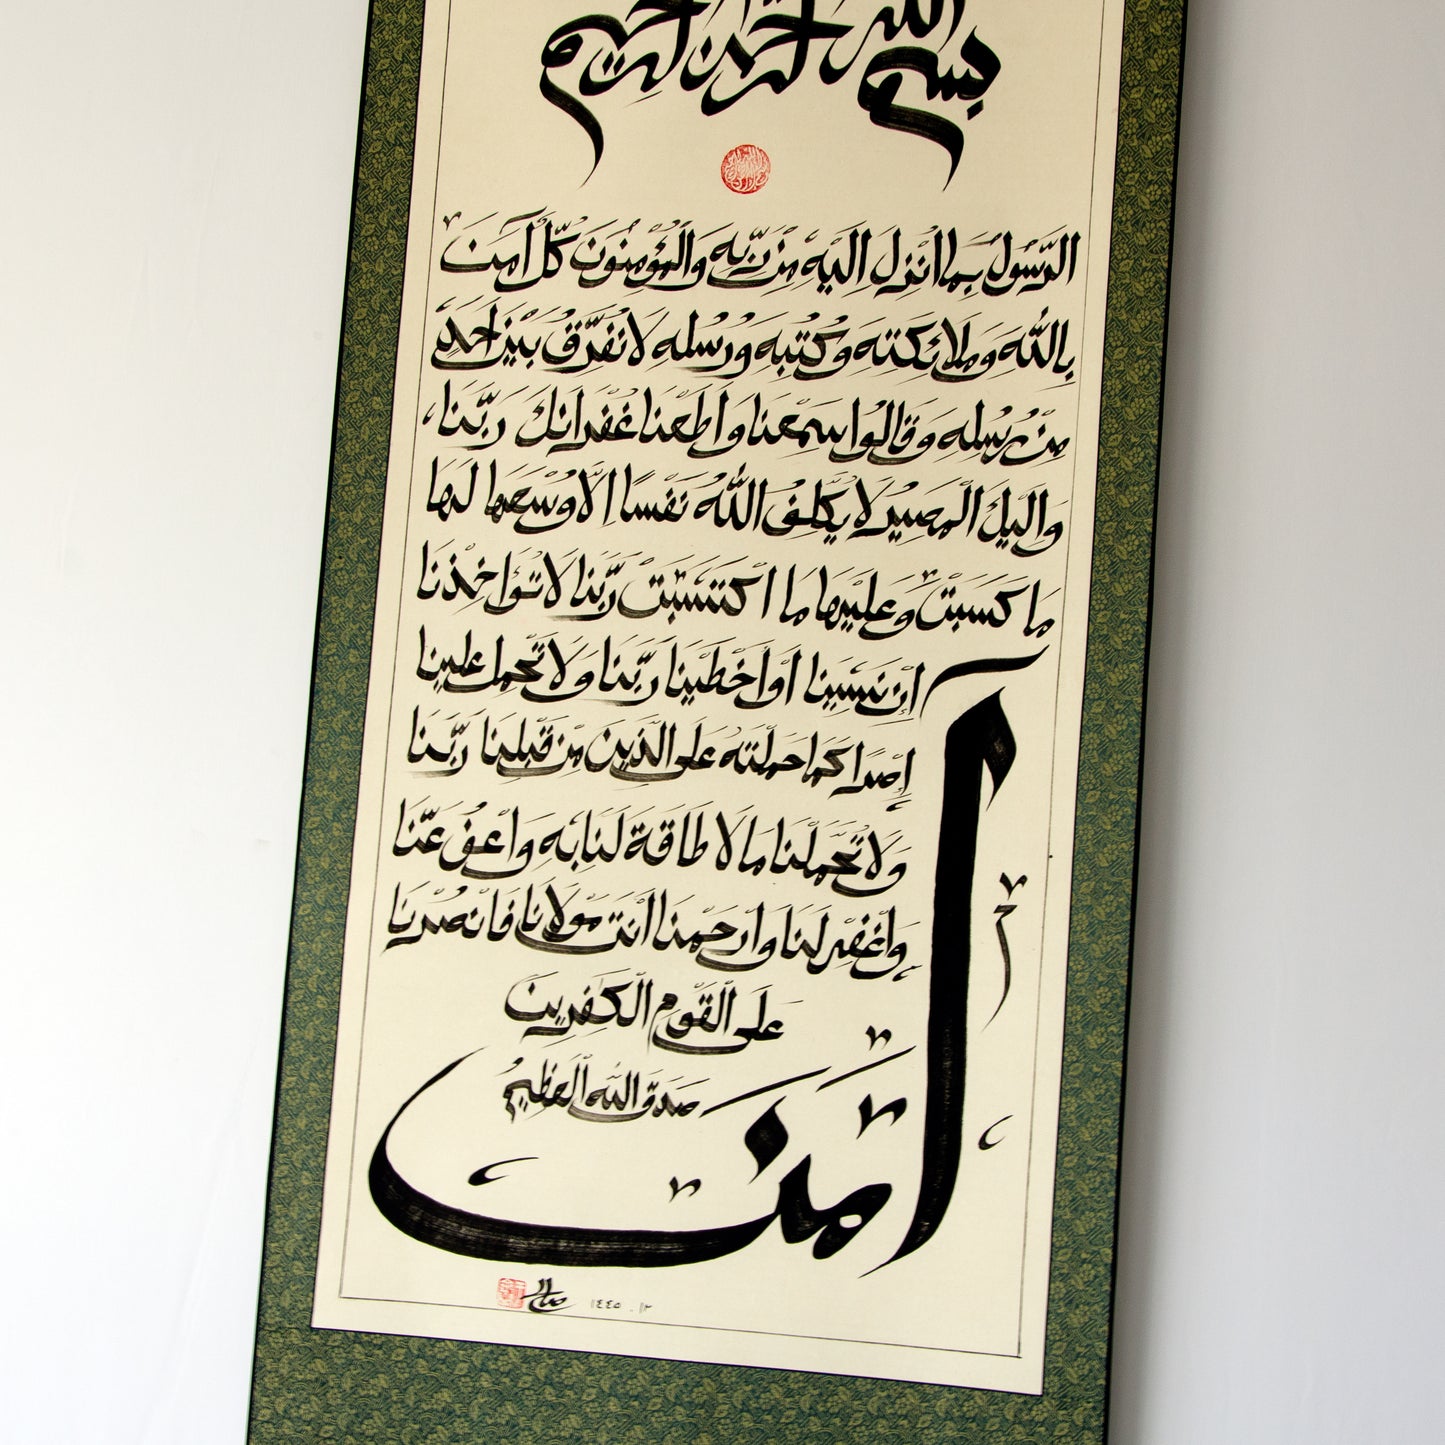 بسم الله الرحمن الرحيم
الرَّسُولُ بِمَا أُنْزِلَ إِلَيْهِ مِنْ رَبِّهِ وَالْمُؤْمِنُونَ كُلٌّ آمَنَ
بِاللَّهِ وَمَلَائِكَتِهِ وَكُتُبِهِ وَرُسُلِهِ لَا نُفَرِّقُ بَيْنَ أَحَدٍ
مِنْ رُسُلِهِ وَقَالُوا سَمِعْنَا وَأَطَعْنَا غُفْرَانَكَ رَبَّنَا
وَإِلَيْكَ الْمَصِيرُ لَا يُكَلِّفُ اللَّهُ نَفْسًا إِلَّا وُسْعَهَا لَهَا
مَا كَسَبَتْ وَعَلَيْهَا مَا اكْتَسَبَتْ رَبَّنَا لَا تُؤَاخِذْنَا
إِنْ نَسِينَا أَوْ أَخْطَيْنَا رَبَّنَا وَلَا تَحْمِلْ عَلَيْنَا
إِصْرًا كَمَا حَمَلْتَهُ عَلَى الَّذِينَ مِنْ قَبْلِنَا رَبَّنَا
وَلَا تُحَمِّلْنَا مَا لَا طَاقَةَ لَنَا بِهِ وَاعْفُ عَنَّا
وَاغْفِرْ لَنَا وَارْحَمْنَا أَنْتَ مَوْلَانَا فَانْصُرْنَا
عَلَى الْقَوْمِ الْكَٰفِرِينَ
صَدَقَ اللَّهُ الْعَظِيمُ
آمَنَ
١٤٤٥ . ١٢